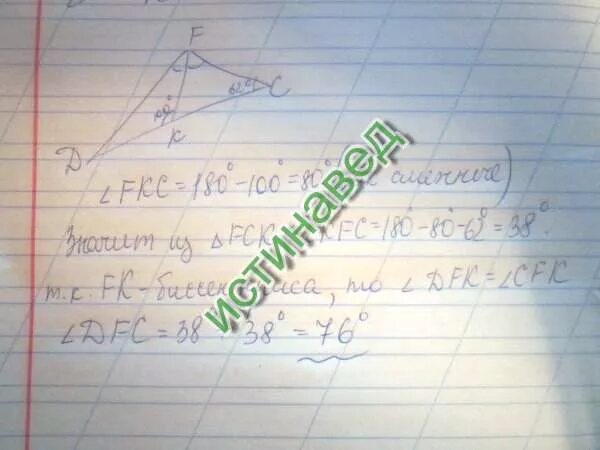 F
62°
C
100°
K
D
∠FKC=180°-100°=80° смежные)
Значит из △FCK KFC=180°-80°-62°=38°.
т.к. FK- то ∠DFK=∠CFK
∠DFC=38 38°=76°
истинавед